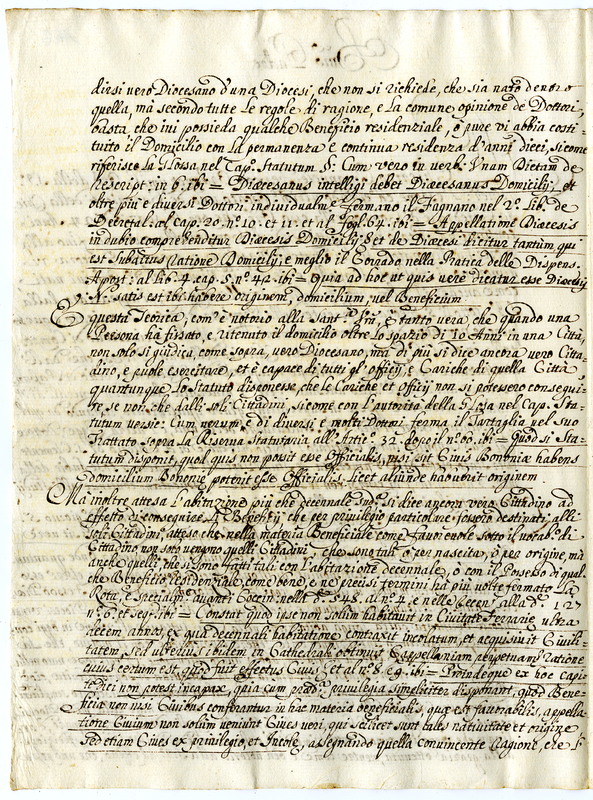 dirsi vero Diocesano d'una Diocesi, che non si richiede, che sia nato dentro
quella, mà secondo tutte Le regole di ragione, e La comune opinione de Dottori,
basta, che ivi possieda qualche Beneficio residenziale, ò pure vi abbia costi-
tuito il Domicilio con La permanenza e continua residenza d'anni dieci, sicome
riferisce La Glossa nel Cap.º Statutum §: Cum vero in verb. Unam Dietam de
Rescript: in 6. ibi = Diœcesanus intelligi debet Diœcesanus Domicilij, et
oltre più e diversi Dottori individualm.e fermano il Fagnano nel 2.º Lib. de
Decretal: al cap. 20. n.º 10. et 11. et al fogl. 64. ibi = Appellatione Diœcesis
in dubio comprehenditur Diœcesis Domicilij, et de Diœcesi dicitur tantùm, qui
est Subditus ratione Domicilij; e meglio il Corrado nella Pratica delle Dispens.
Apost: al lib. 4. cap. 5. n.º 42. ibi = Quia ad hoc ut quis verè dicatur esse Diœcesis
N. satis est ibi habere originem, domicilium, vel Beneficium
E questa Teorica, com'è notorio alla Sant.tà Sua, è tanto vera, che quando una
Persona hà fissato, e ritenuto il domicilio oltre lo spazio di 10. Anni in una Città,
non solo si giudica, come sopra, vero Diocesano, mà di più si dice ancora vero Citta-
dino, e puole esercitare, et è capace di tutti gl'officij, e Cariche di quella Città
quantunque Lo Statuto disponesse, che le Cariche et Officij non si potessero consegui-
re, se non che dalli soli Cittadini, sicome con L'autorità della Glosa nel Cap. Sta-
tutum versic: Cum verum, e di diversi e molti Dottori ferma il Tartaglia nel suo
Trattato sopra La Riserva Statutaria all'Artic. 32. dopo il n.º 60. ibi = Quod si Sta-
tutum disponit, quod quis non possit esse Officialis, nisi sit Civis Bononiæ habens
domicilium Bononiæ poterit esse Officialis, licet aliunde habuerit originem.
Ma inoltre attesa L'abitazione più che decennale sud.a si dice ancora vero Cittadino ad
effetto di conseguire Li Beneficij, che per privilegio particolare fossero destinati alli
soli Cittadini, atteso che nella materia Beneficiale come favorevole sotto il vocab.º di
Cittadino, non solo vengono quelli Cittadini che sono tali ò per nascita, ò per origine, mà
anche quelli, che si sono fatti tali con L'abitazione decennale, ò con il Possesso di qual-
che Beneficio residenziale, come bene, e ne precisi termini hà più volte fermato La
Rota, e Specialm.e avanti Coccin. nella D. 548. al n.º 4. e nelle Recen. alla D. 127
n.º 6. et seq. ibi = Constat quod ipse non solùm habitavit in Civitate Ferrariæ ultra
decem annos, ex qua decennali habitatione contraxit incolatum, et acquisivit Civili-
tatem, sed ulterius ibidem in Cathedrali obtinuit Cappellaniam perpetuam ratione
cuius certum est, quod fuit effectus Civis; et al n.º 8. e 9. ibi = Proindeque ex hoc capi-
te dici non potest incapax, quia cum præd.a privilegia simpliciter disponant, quod Bene-
ficia non nisi Civibus conferantur in hac materia beneficiali, quæ est favorabilis, appella-
tione Civium non solùm veniunt Cives veri, qui scilicet sunt tales nativitate et origine
sed etiam Cives ex privilegio, et Incolæ, assegnando quella convincente Ragione, che S